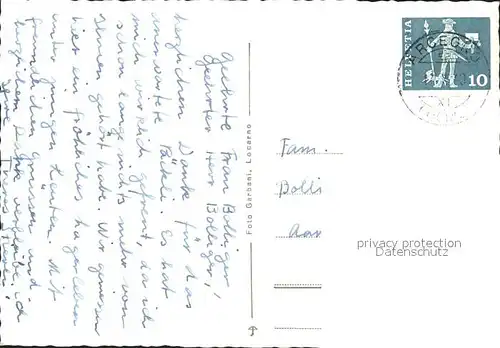 Geehrte Frau Bolliger,
Geehrter Herr Bolliger,
herzlichen Dank für das
unerwartete Päckli. Es hat
mich wirklich gefreut, da ich
schon lange nichts mehr von
Ihnen gehört habe. Wir geniessen
hier ein fröhliches Lagerleben
unter jungen Leuten. Mit
freundlichen Grüssen und
herzlichem Dank verbleibe ich
Foto Garbani, Locarno
HELVETIA
10
Fam.
Bolli
Aar
privacy protection
Datenschutz